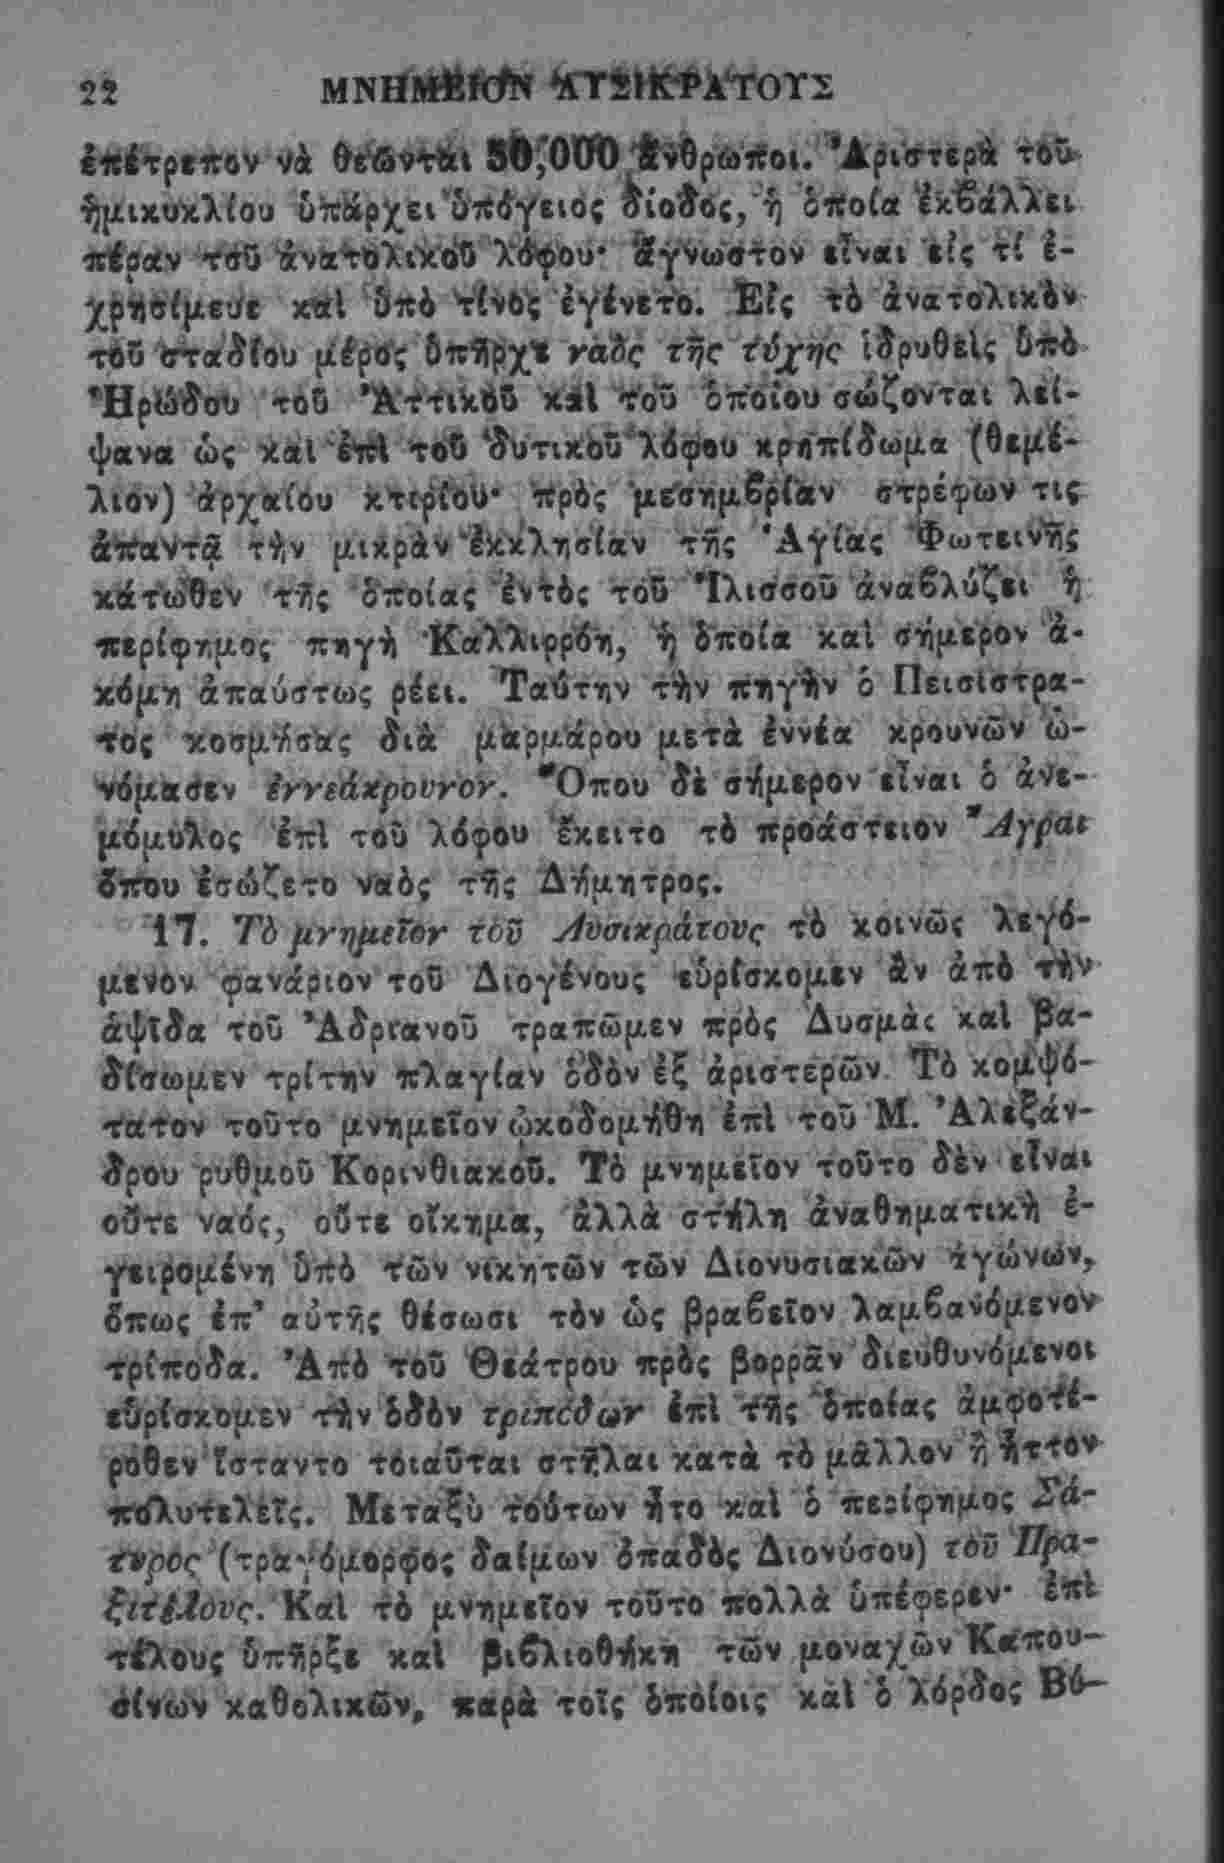 22 ΜΝΗΜΕΙΟΝ ΛΥΣΙΚΡΑΤΟΥΣ
ἐπέτρεπον νὰ θεῶνται 50,000 ἄνθρωποι. Ἀριστερὰ τοῦ
ἡμικυκλίου ὑπάρχει ὑπόγειος δίοδος, ἡ ὁποία ἐκβάλλει
πέραν τοῦ ἀνατολικοῦ λόφου· ἄγνωστον εἶναι εἰς τί ἐ-
χρησίμευε καὶ ὑπὸ τίνος ἐγένετο. Εἰς τὸ ἀνατολικὸν
τοῦ σταδίου μέρος ὑπῆρχε ναὸς τῆς τύχης ἱδρυθεὶς ὑπὸ
Ἡρώδου τοῦ Ἀττικοῦ καὶ τοῦ ὁποίου σώζονται λεί-
ψανα ὡς καὶ ἐπὶ τοῦ δυτικοῦ λόφου κρηπίδωμα (θεμέ-
λιον) ἀρχαίου κτιρίου· πρὸς μεσημβρίαν στρέφων τις
ἀπαντᾷ τὴν μικρὰν ἐκκλησίαν τῆς Ἁγίας Φωτεινῆς
κάτωθεν τῆς ὁποίας ἐντὸς τοῦ Ἰλισσοῦ ἀναβλύζει ἡ
περίφημος πηγὴ Καλλιρρόη, ἡ ὁποία καὶ σήμερον ἀ-
κόμη ἀπαύστως ρέει. Ταύτην τὴν πηγὴν ὁ Πεισίστρα-
τος κοσμήσας διὰ μαρμάρου μετὰ ἐννέα κρουνῶν ὠ-
νόμασεν ἐννεάκρουνον. Ὅπου δὲ σήμερον εἶναι ὁ ἀνε-
μόμυλος ἐπὶ τοῦ λόφου ἔκειτο τὸ προάστειον Ἄγραι
ὅπου ἐσώζετο ναὸς τῆς Δήμητρος.
17. Τὸ μνημεῖον τοῦ Λυσικράτους τὸ κοινῶς λεγό-
μενον φανάριον τοῦ Διογένους εὑρίσκομεν ἂν ἀπὸ τὴν
ἁψῖδα τοῦ Ἀδριανοῦ τραπῶμεν πρὸς Δυσμὰς καὶ βα-
δίσωμεν τρίτην πλαγίαν ὁδὸν ἐξ ἀριστερῶν. Τὸ κομψό-
τατον τοῦτο μνημεῖον ᾠκοδομήθη ἐπὶ τοῦ Μ. Ἀλεξάν-
δρου ρυθμοῦ Κορινθιακοῦ. Τὸ μνημεῖον τοῦτο δὲν εἶναι
οὔτε ναός, οὔτε οἴκημα, ἀλλὰ στήλη ἀναθηματικὴ ἐ-
γειρομένη ὑπὸ τῶν νικητῶν τῶν Διονυσιακῶν ἀγώνων,
ὅπως ἐπ' αὐτῆς θέσωσι τὸν ὡς βραβεῖον λαμβανόμενον
τρίποδα. Ἀπὸ τοῦ Θεάτρου πρὸς βορρᾶν διευθυνόμενοι
εὑρίσκομεν τὴν ὁδὸν τριπόδων ἐπὶ τῆς ὁποίας ἀμφοτέ-
ρωθεν ἵσταντο τοιαῦται στῆλαι κατὰ τὸ μᾶλλον ἢ ἧττον
πολυτελεῖς. Μεταξὺ τούτων ἦτο καὶ ὁ περίφημος Σά-
τυρος (τραγόμορφος δαίμων ὀπαδὸς Διονύσου) τοῦ Πρα-
ξιτέλους. Καὶ τὸ μνημεῖον τοῦτο πολλὰ ὑπέφερεν· ἐπὶ
τέλους ὑπῆρξε καὶ βιβλιοθήκη τῶν μοναχῶν Καπου-
σίνων καθολικῶν, παρὰ τοῖς ὁποίοις καὶ ὁ λόρδος Βύ-